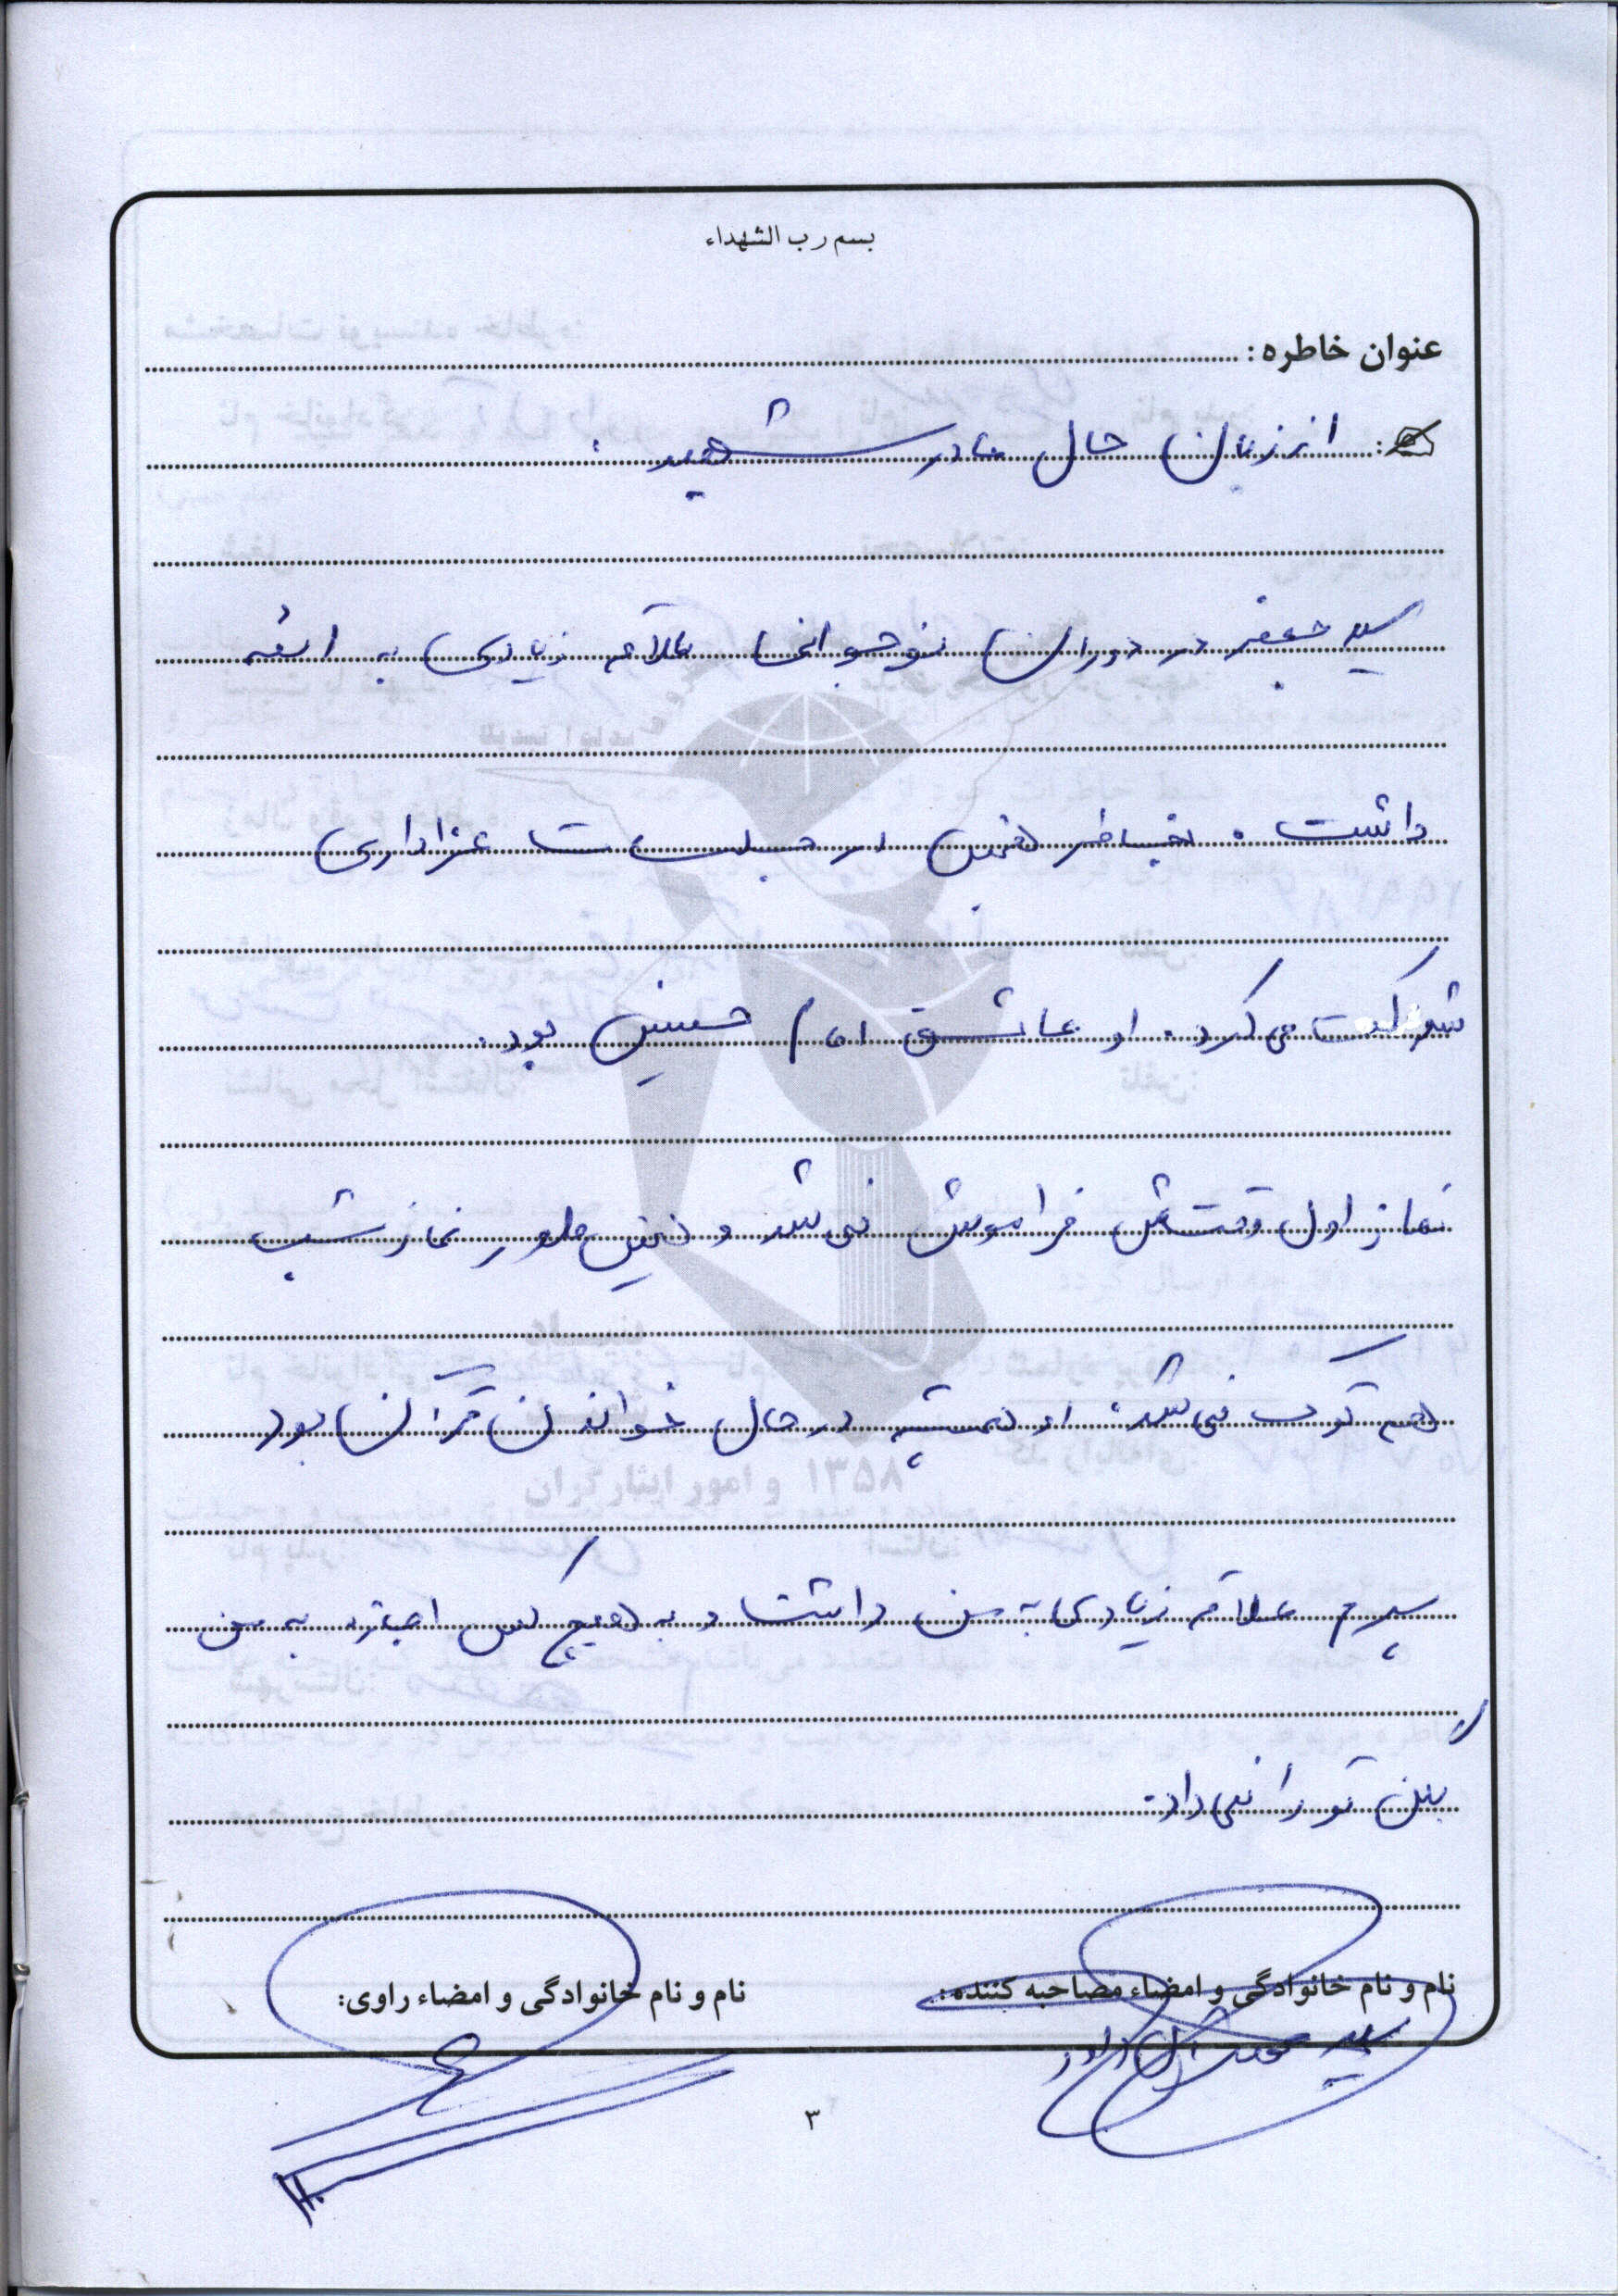 بسم رب الشهداء
عنوان خاطره:
از زبان حال مادر شهید :
سید جعفر در دوران نوجوانی علاقه زیادی به ائمه
داشت. بخاطر همین در جلسات عزاداری
شرکت می کرد. او عاشق امام حسین بود.
نماز اول وقتش فراموش نمی شد و نماز شب
هم ترک نمی شد. او همیشه در حال خواندن قرآن بود
پسرم علاقه زیادی به من داشت و به هیچ کس اجازه به من
بین تو را نمی داد.
نام و نام خانوادگی و امضاء مصاحبه کننده:
نام و نام خانوادگی و امضاء راوی:
سید محمد
۳